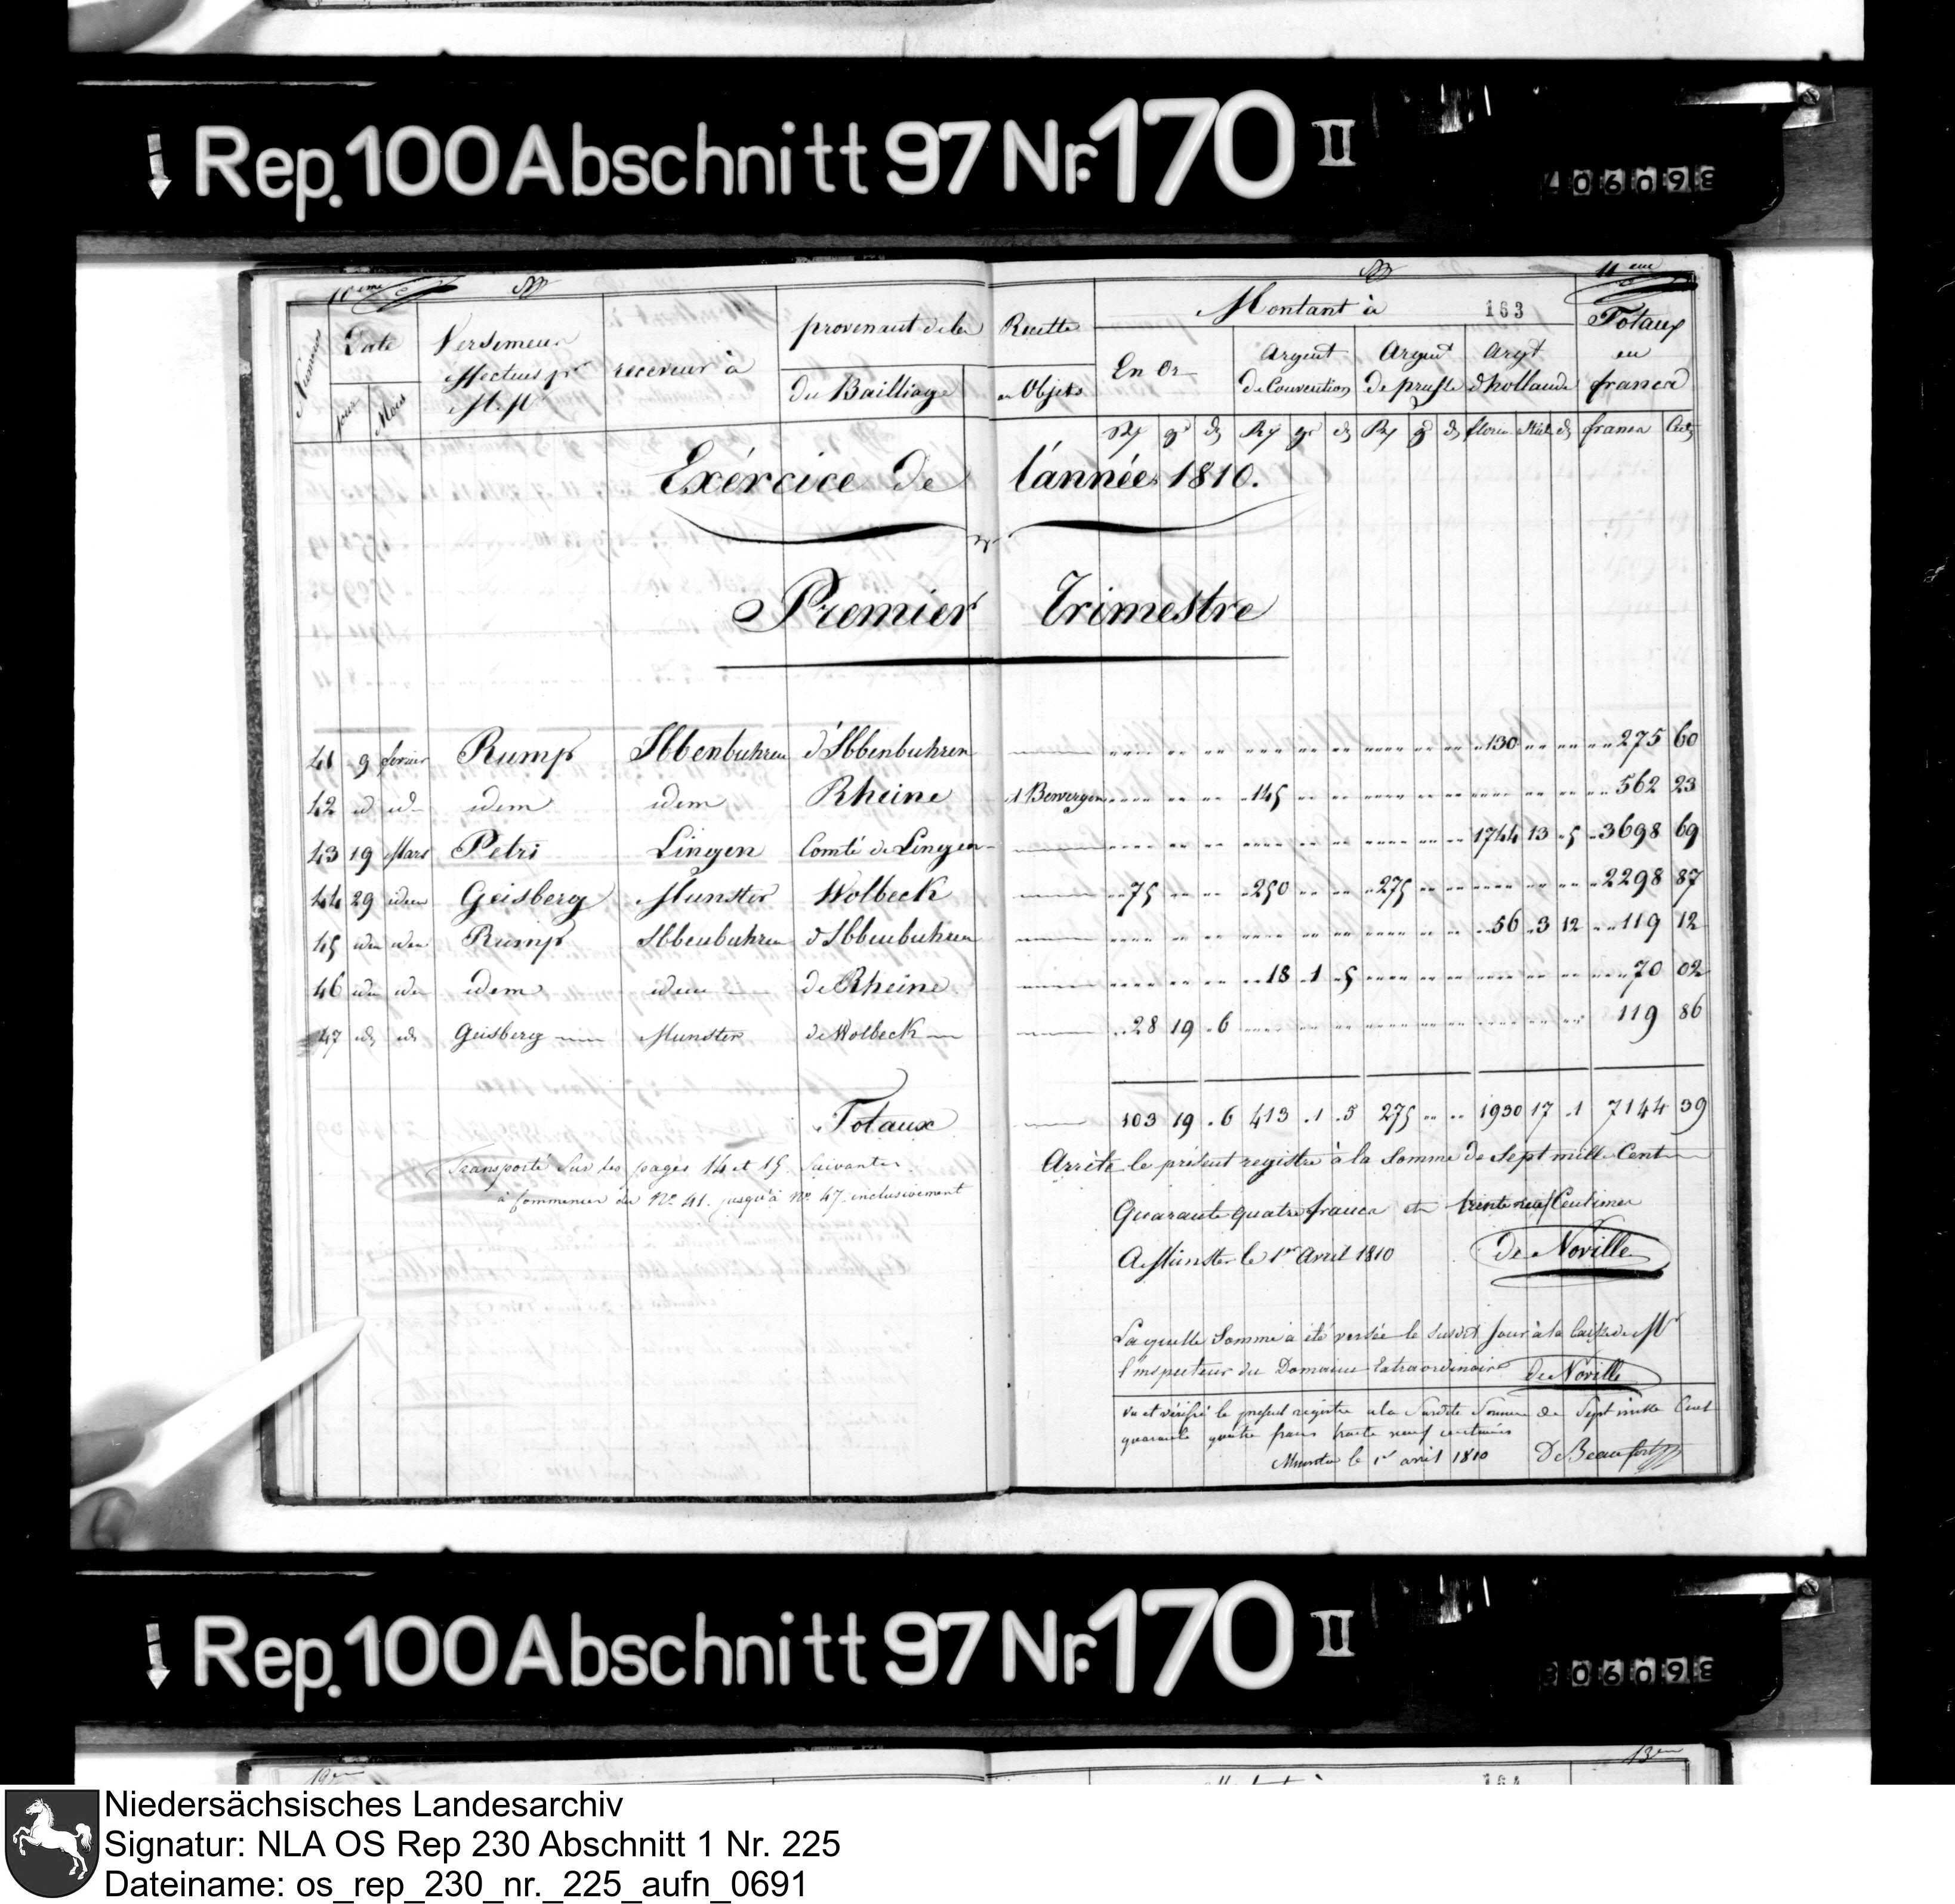 Rep. 100 Abschnitt 97 Nr. 170 II
06098
10eme
11eme
Numeros
Date
Jour
Mois
Versemens
effectués pr
Mr
receveur à
provenant de la Recette
du Bailliage
ou Objets
Montant à
163
En Or
Argent
de Convention
Argent
de prusse
Argt
d'hollande
Totaux
en
francs
Rx gr d Rx gr d Rx gr d florin Stüb d francs Cent
Exércice de l'année 1810.
Premier Trimestre
41 9 fevrier Rump Ibbenbuhren d'Ibbenbuhren 130 275 60
42 id id idem idem Rheine et Bevergern 145 562 23
43 19 Mars Petri Lingen Comté de Lingen 1744 13 5 3698 69
44 29 idem Geisberg Munster Wolbeck 75 250 275 2298 87
45 idem idem Rump Ibbenbuhren d'Ibbenbuhren 56 3 12 119 12
46 idem idem idem idem de Rheine 18 1 5 70 02
47 id id Geisberg Munster de Wolbeck 28 19 6 119 86
Totaux 103 19 6 413 1 5 275 1930 17 1 7144 39
Transporté sur les pages 14 et 15 suivantes
à commencer du No 41. jusqu'à No 47. inclusivement
Arrète le présent registre à la Somme de Sept mille Cent
Quarante quatre francs et trente neuf Centimes
A Münster le 1er Avril 1810
de Noville
La quelle Somme a été versée le susdit Jour à la Caisse de Mr
l'inspecteur du Domaine Extraordinaire
de Noville
vu et vérifié le présent registre a la Susdite Somme de Sept mille Cent
quarante quatre francs trente neuf centimes
Munster le 1er avril 1810
De Beaufort
Rep. 100 Abschnitt 97 Nr. 170 II
06098
13em
164
Niedersächsisches Landesarchiv
Signatur: NLA OS Rep 230 Abschnitt 1 Nr. 225
Dateiname: os_rep_230_nr._225_aufn_0691